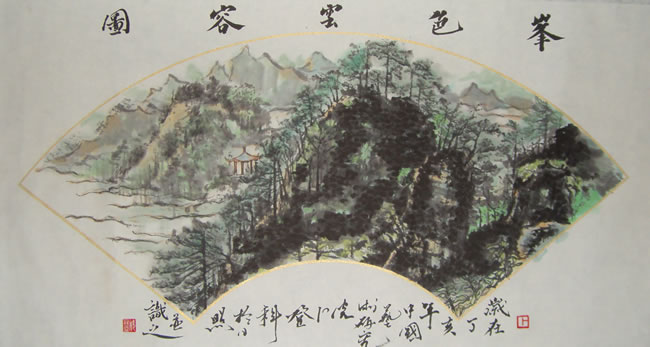 峯色雲容圖
歲在丁亥年中國藝術研究院卜登科於日照並識之